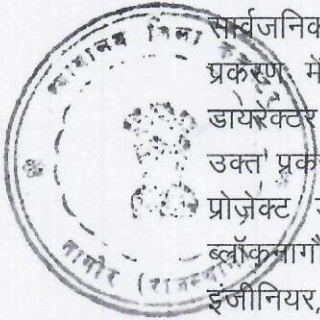 सार्वजनिक
प्रकरण में
डायरेक्टर
उक्त प्रक
प्रोजेक्ट
ब्लॉकनागौ
इंजीनियर,
नागौर (राजस्थान)